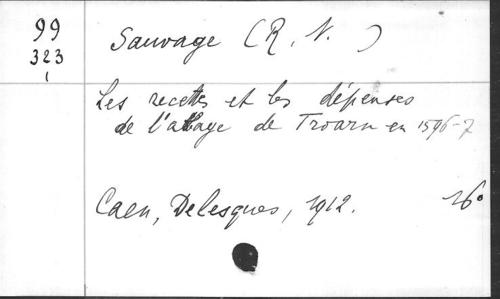 99
323
1
Sauvage (R. N.)
Les recettes et les dépenses
de l'abbaye de Troarn en 1596-7
Caen, Delesques, 1912. 16°